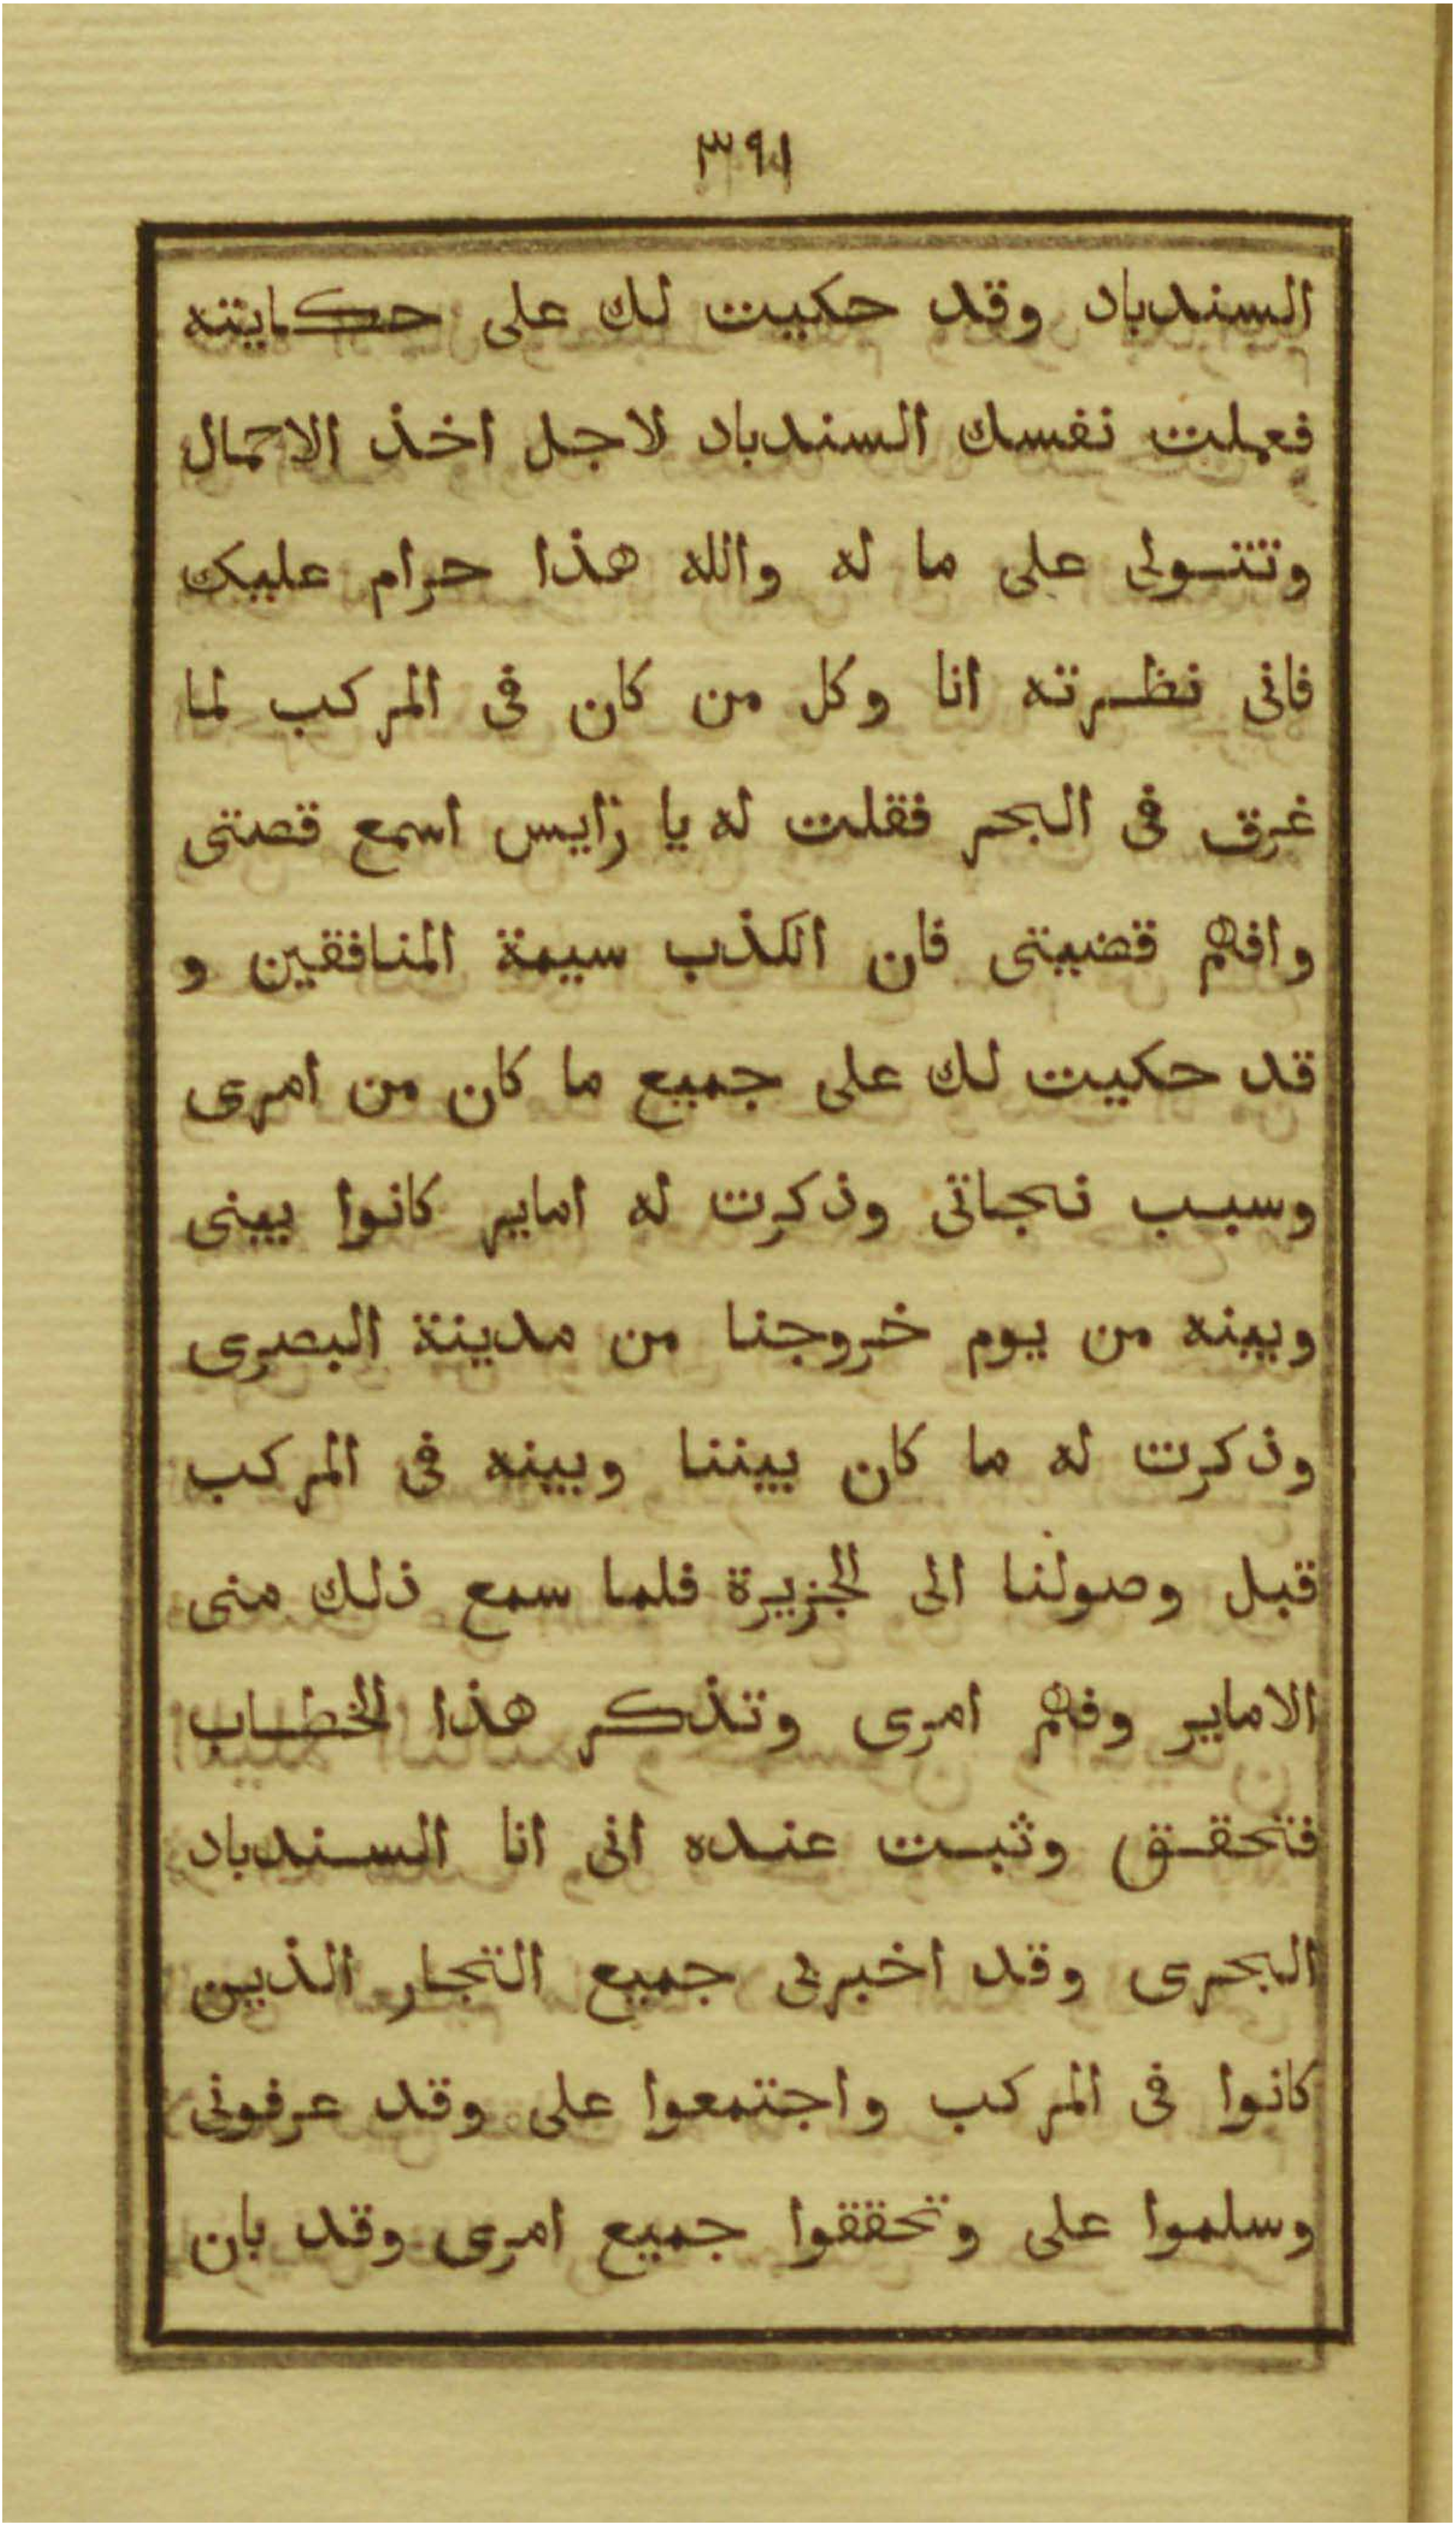 ٣٩١
السندباد وقد حكيت لك على حكايته
فعملت نفسك السندباد لاجل اخذ الاحمال
وتتسولى على ما له والله هذا حرام عليك
فانى نظرته انا وكل من كان فى المركب لما
غرق فى البحر فقلت له يا رايس اسمع قصتى
وافهم قضيتى فان الكذب سيمة المنافقين و
قد حكيت لك على جميع ما كان من امرى
وسبب نجاتى وذكرت له امايير كانوا بينى
وبينه من يوم خروجنا من مدينة البصرى
وذكرت له ما كان بيننا وبينه فى المركب
قبل وصولنا الى الجزيرة فلما سمع ذلك منى
الامايير وفهم امرى وتذكر هذا الخطاب
فتحقق وثبت عنده انى انا السندباد
البحرى وقد اخبرنى جميع التجار الذين
كانوا فى المركب واجتمعوا على وقد عرفونى
وسلموا على وتحققوا جميع امرى وقد بان